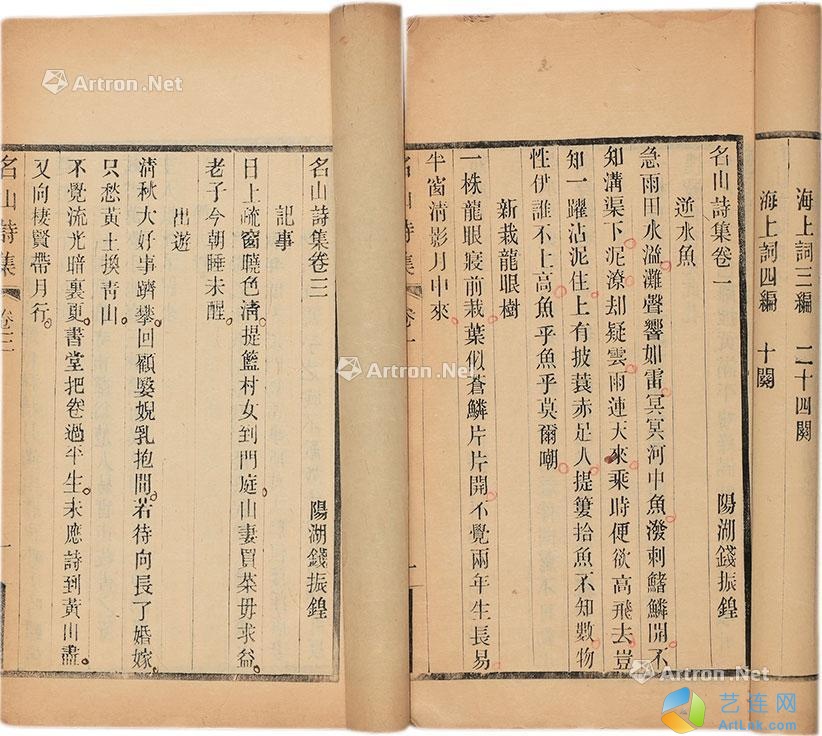 海上詞三編 二十四闋
海上詞四編 十闋
名山詩集卷一 陽湖錢振鍠
逆水魚
急雨田水溢灘聲響如雷冥冥河中魚潑刺鰭鱗開不
知溝渠下泥潦却疑雲雨連天來乘時便欲高飛去豈
知一躍沾泥住上有披蓑赤足人提簍拾魚不知數物
性伊誰不上高魚乎魚乎莫爾嘲
新栽龍眼樹
一株龍眼寢前栽葉似蒼鱗片片開不覺兩年生長易
半窗清影月中來
名山詩集 卷一 一
名山詩集卷三 陽湖錢振鍠
記事
日上疏窗曉色清提籃村女到門庭山妻買菜毋求益
老子今朝睡未醒
出遊
清秋大好事躋攀回顧嫛婗乳抱間若待向長了婚嫁
只愁黃土換青山
不覺流光暗裏更書堂把卷過平生未應詩到黃山盡
又向棲賢帶月行
名山詩集 卷三 一
Artron.Net
Artron.Net
Artron.Net
艺连网
ArtLak.com